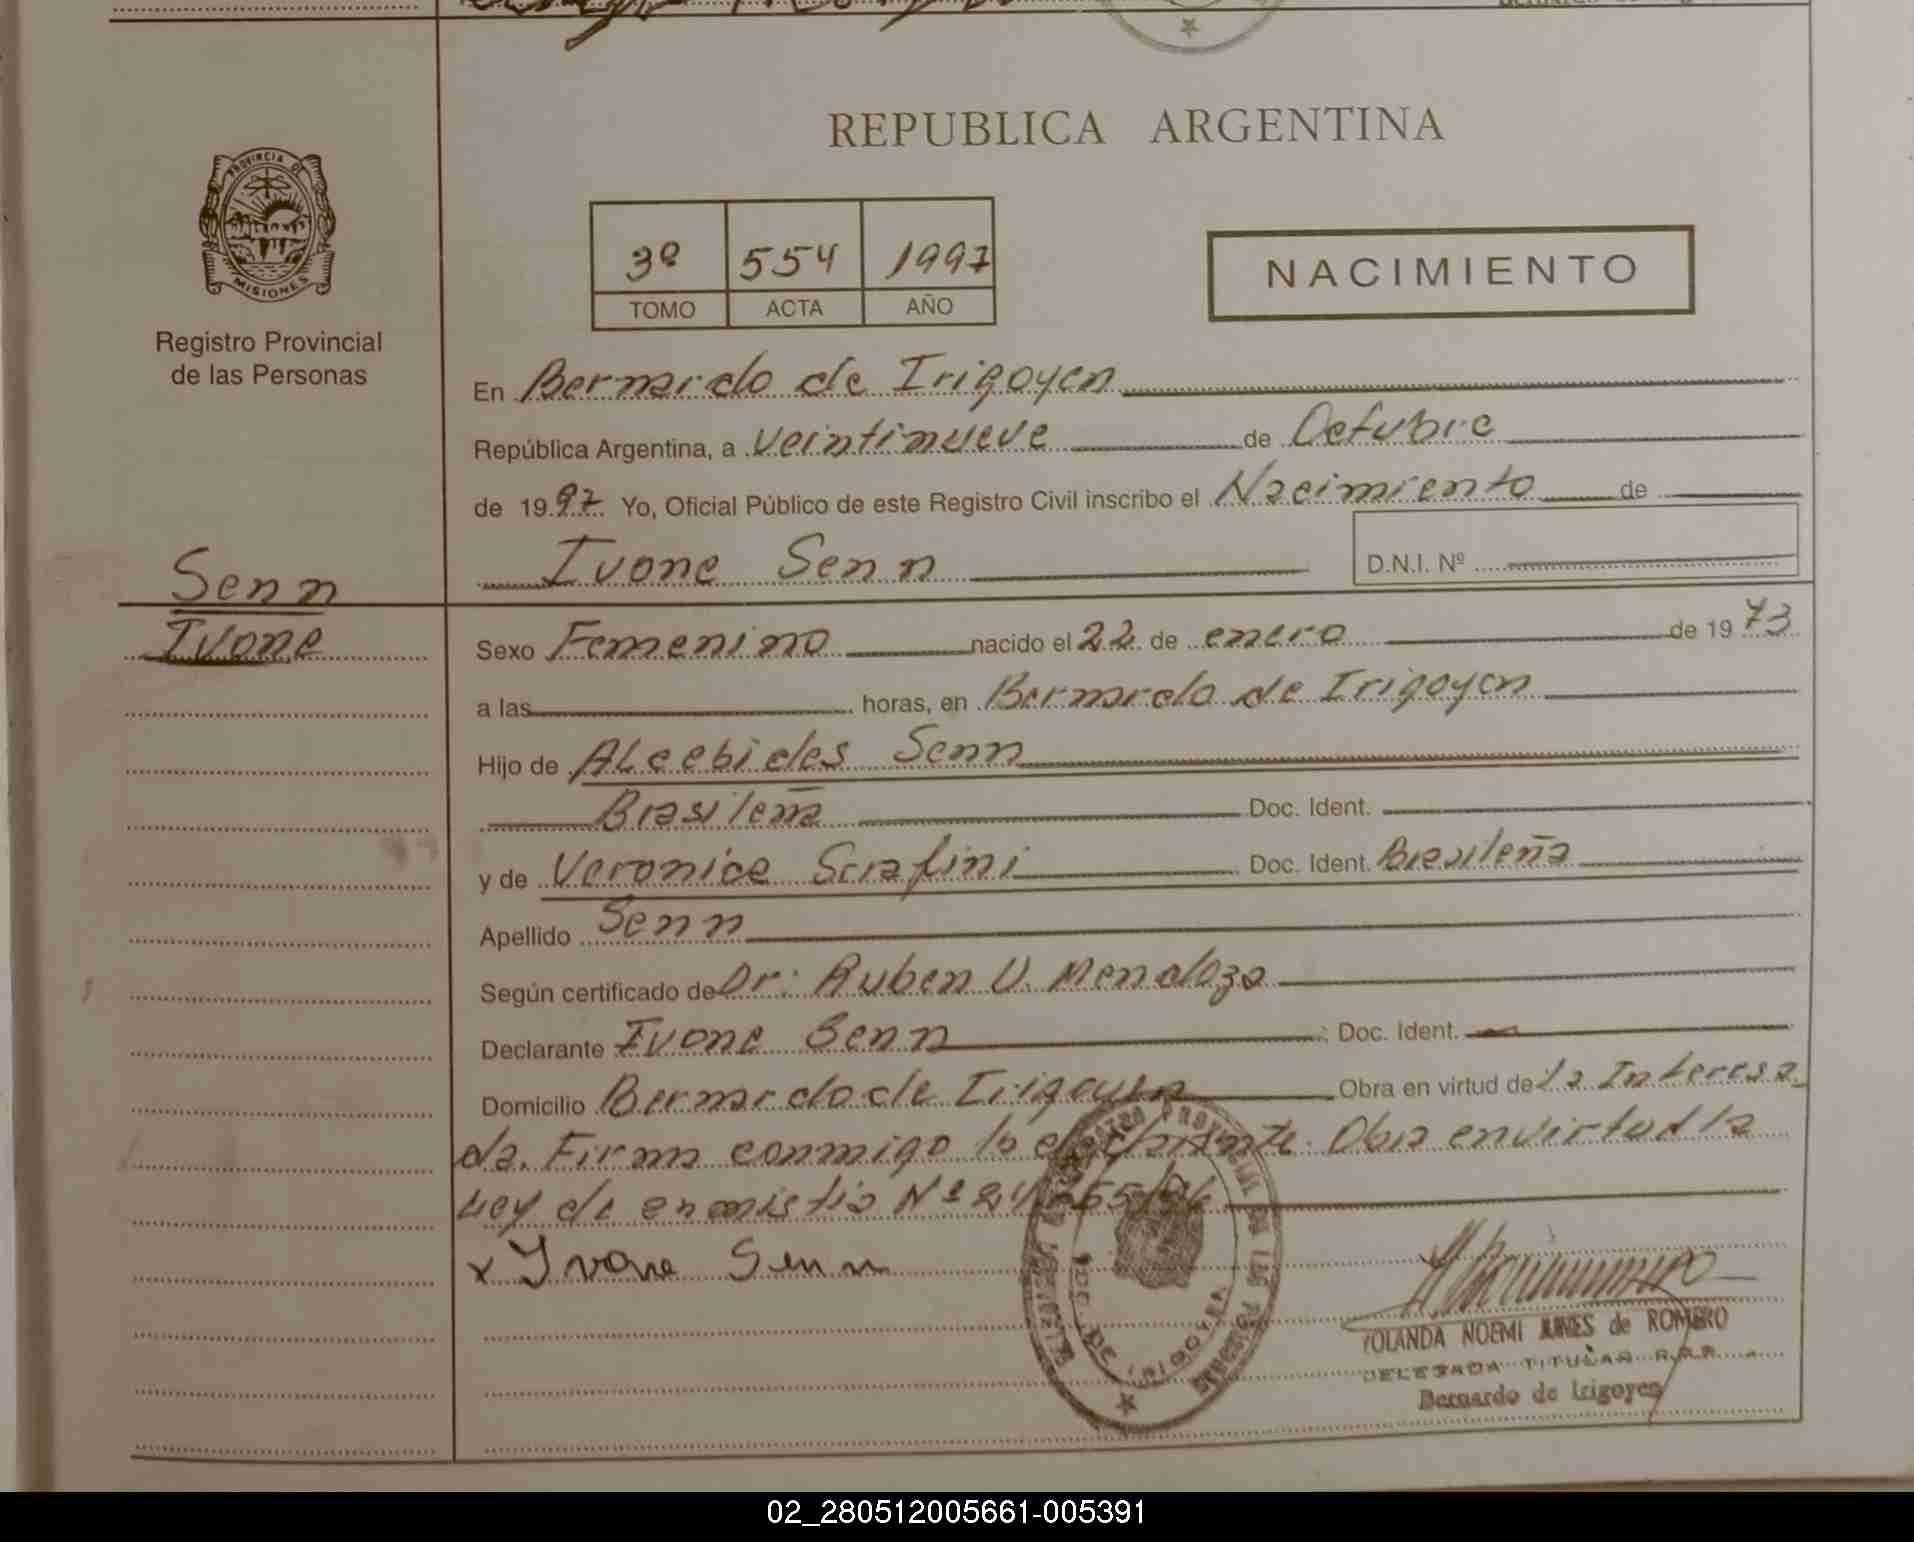 REPUBLICA ARGENTINA
PROVINCIA DE
MISIONES
Registro Provincial
de las Personas
3º 554 1997
TOMO ACTA AÑO
NACIMIENTO
En Bernardo de Irigoyen
República Argentina, a veintinueve de Octubre
de 1997 Yo, Oficial Público de este Registro Civil inscribo el Nacimiento de
Ivone Senn D.N.I. Nº
Senn
Ivone
Sexo Femenino nacido el 22 de enero de 1973
a las horas, en Bernardo de Irigoyen
Hijo de Alcebides Senn
Brasileña Doc. Ident.
y de Veronica Serafini Doc. Ident. Brasileña
Apellido Senn
Según certificado de Dr: Ruben V. Mendoza
Declarante Ivone Senn Doc. Ident.
Domicilio Bernardo de Irigoyen Obra en virtud de la Interesa
da. Firma conmigo la declarante. Obra en virtud la
Ley de enmistia Nº
x Ivone Senn
YOLANDA NOEMI JUNES de ROMERO
DELEGADA TITULAR R.P.P.
Bernardo de Irigoyen
02_280512005661-005391